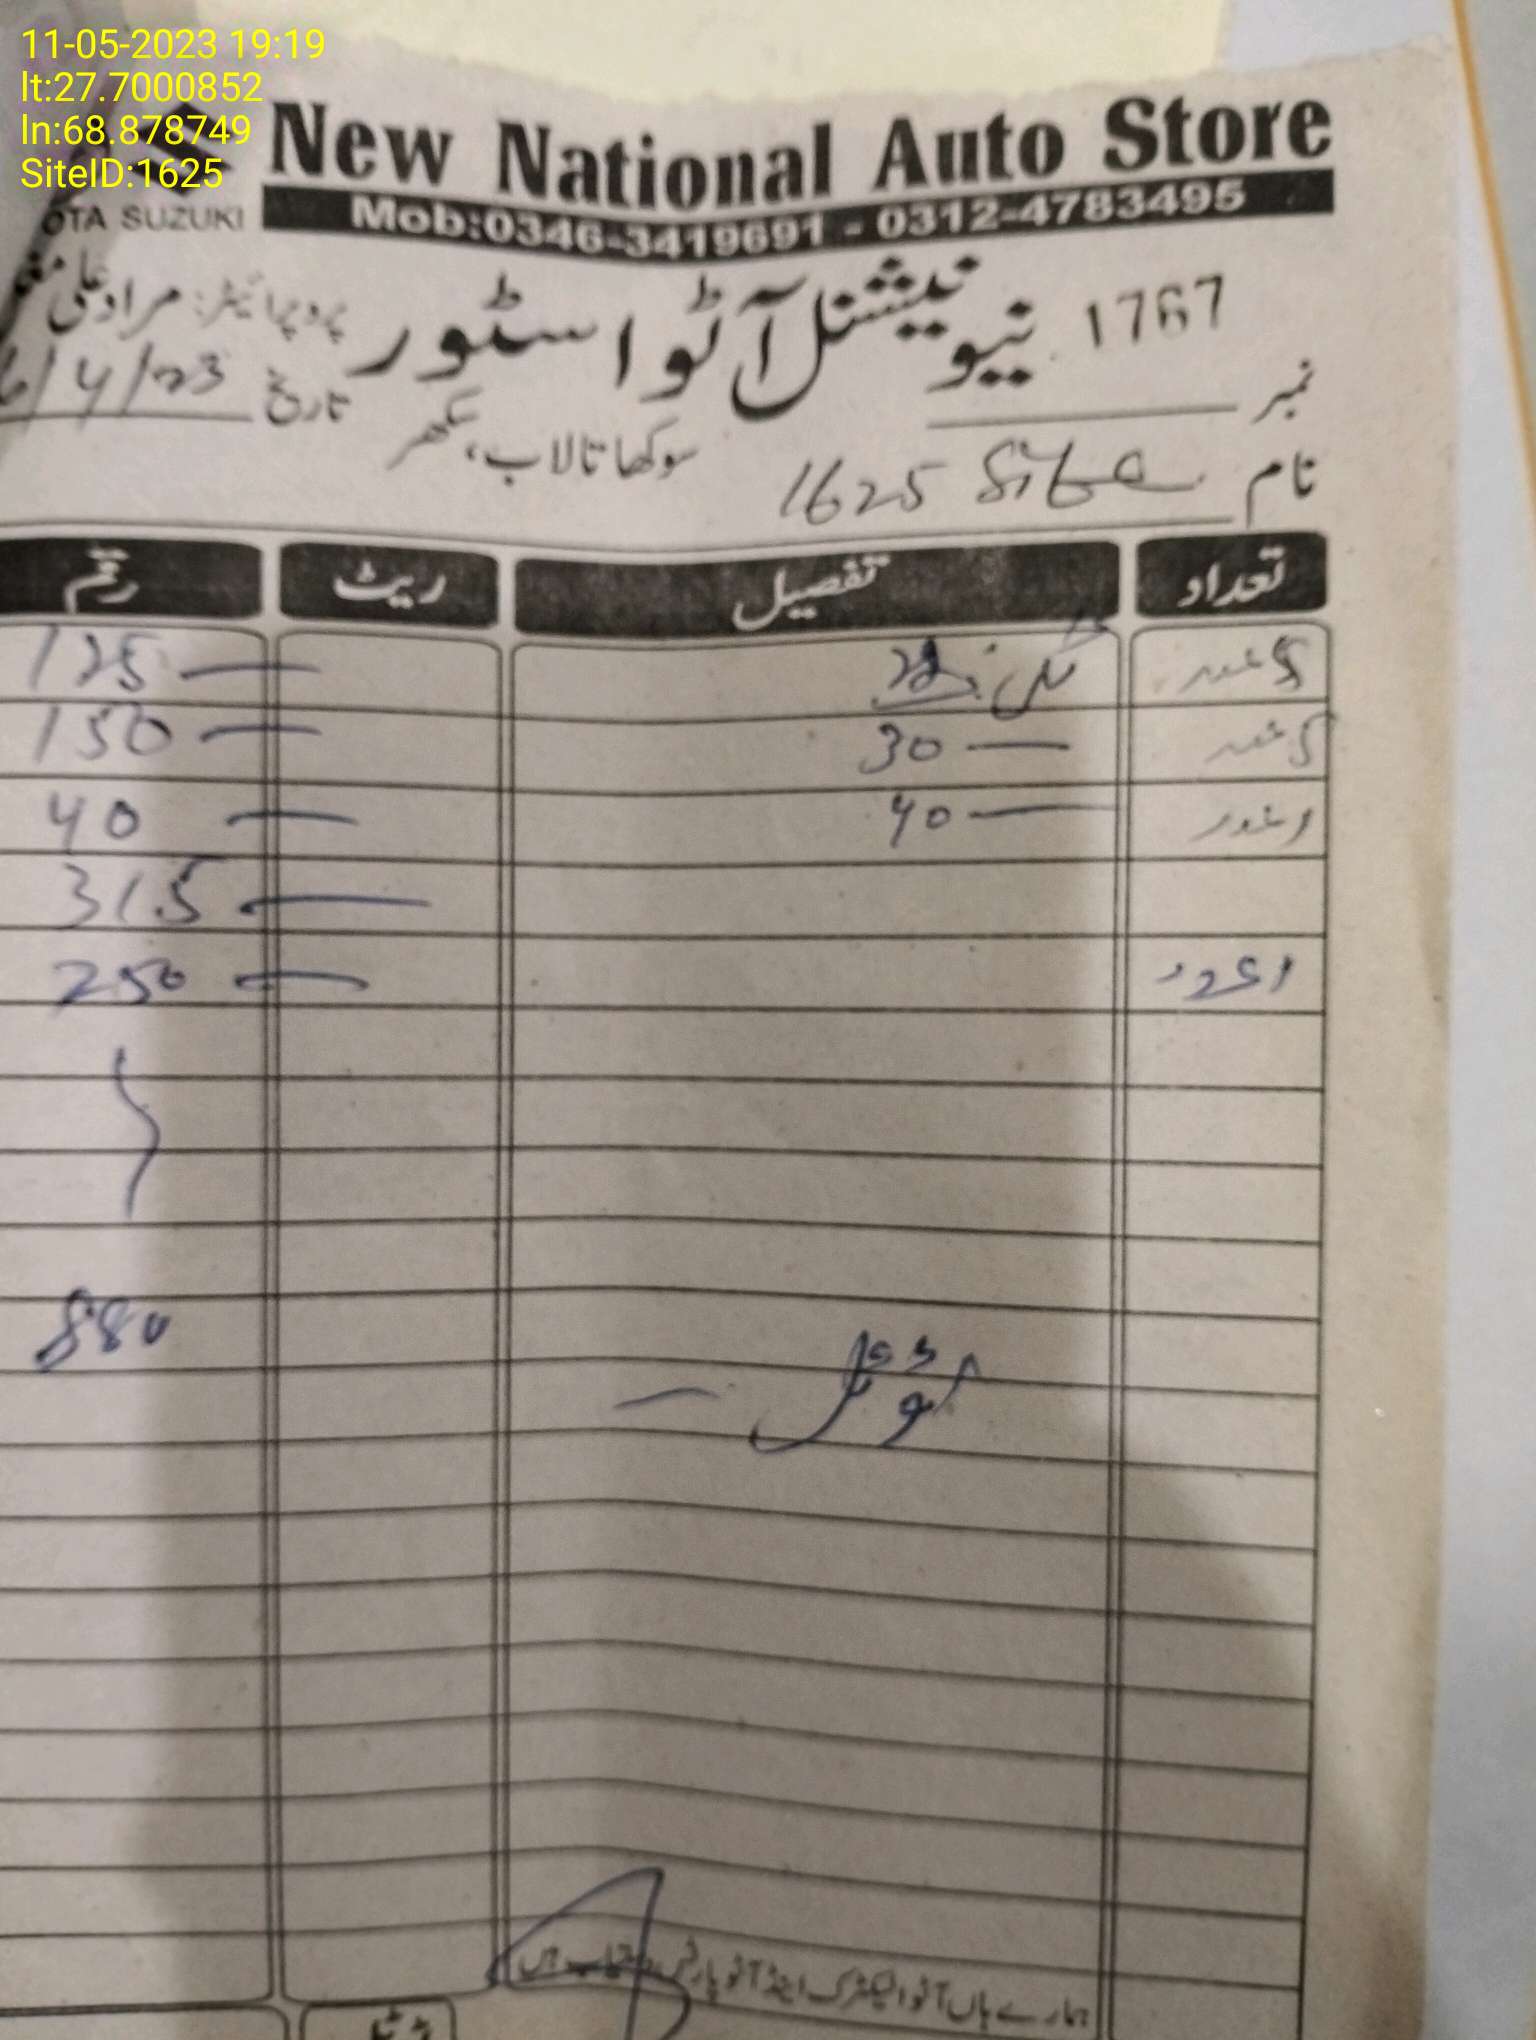 11-05-2023 19:19
lt:27.7000852
ln:68.878749
SiteID:1625
New National Auto Store
OTA SUZUKI
Mob:0346-3419691 - 0312-4783495
1767 نیو نیشنل آٹو اسٹور
پروپرائیٹر: مراد علی
نمبر
تاریخ 6/4/23
سوکھا تالاب، سکھر
نام 1625 Site
تعداد تفصیل ریٹ رقم
5 عدد 125
5 عدد 30 — 150
1 عدد 40 — 40
315
250
880
ٹوٹل —
ہمارے ہاں آٹو الیکٹرک اینڈ آٹو پارٹس دستیاب ہیں
ٹوٹل